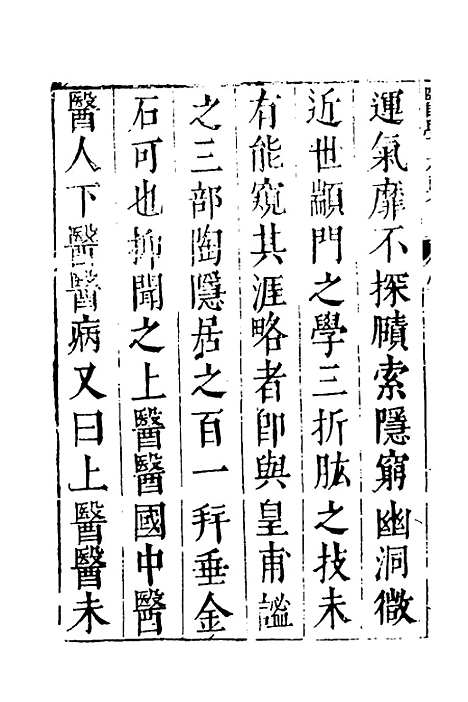 運氣靡不探賾索隱窮幽洞微
近世顓門之學三折肱之技未
有能窺其涯略者卽與皇甫謐
之三部陶隱居之百一幷垂金
石可也抑聞之上醫醫國中醫
醫人下醫醫病又曰上醫醫未